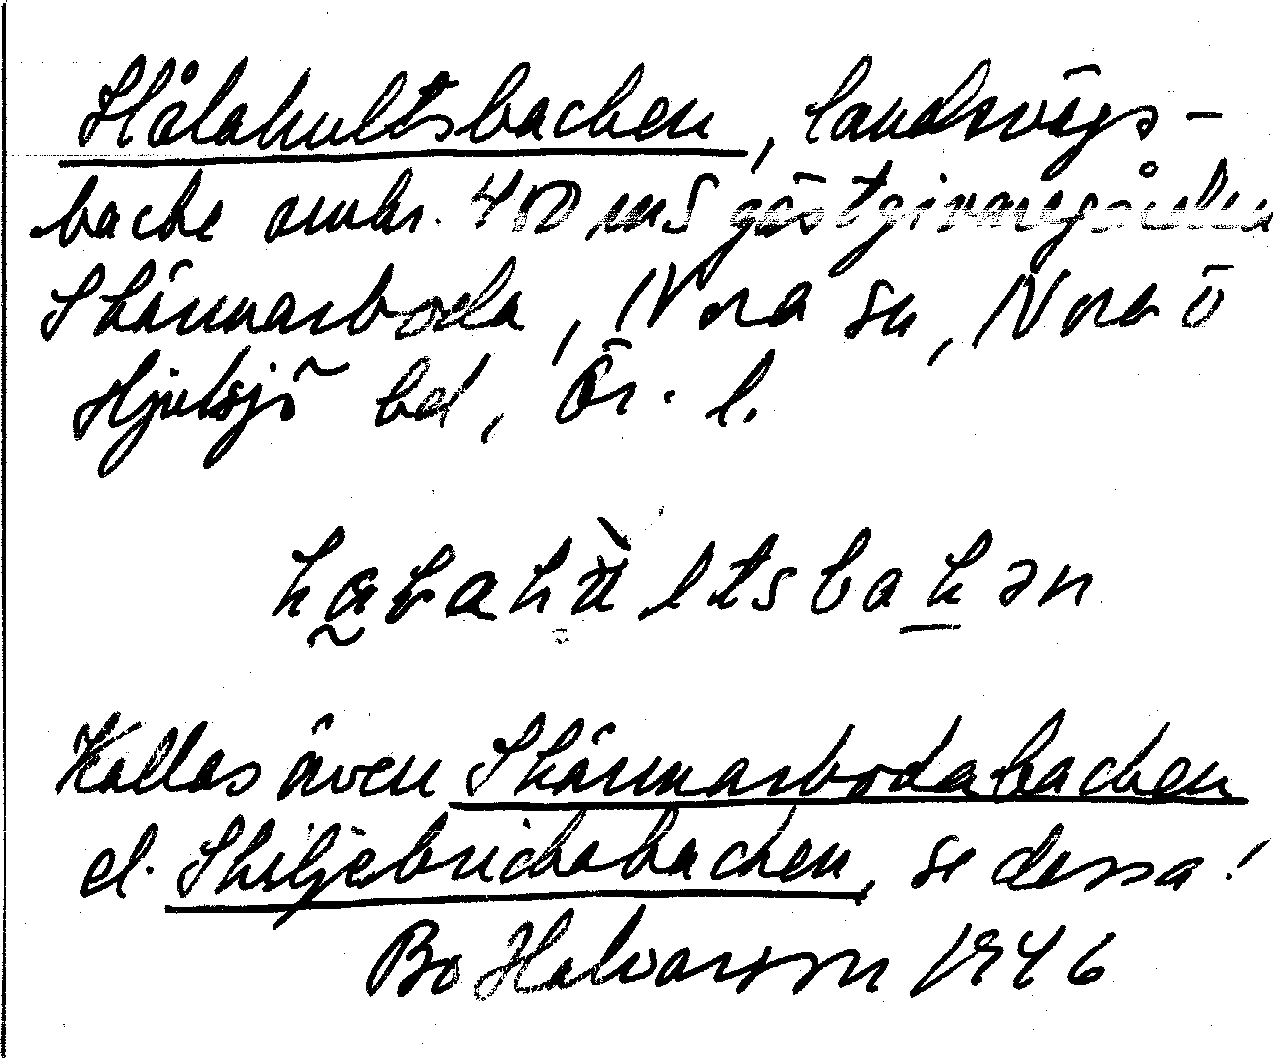 Hålahultsbacken, landsvägs-
backe omkr. 400 m S gästgivaregården
Skärmarboda, Nora sn, Nora o
Hjulsjö bd, Ör. l.
Kallas även Skärmarbodabacken
el. Skiljebricksbacken, se dessa!
Bo Halvarson 1946